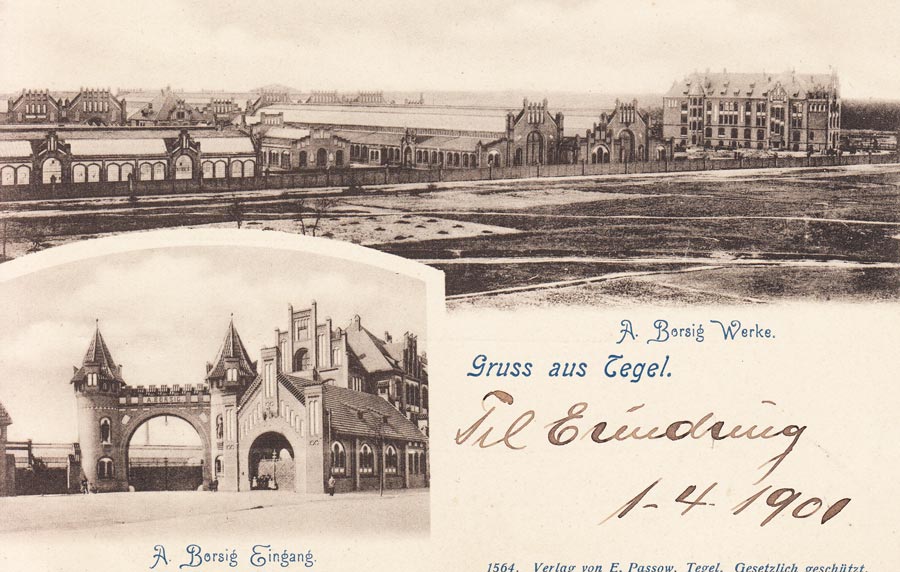 A. Borsig Werke.
Gruss aus Tegel.
Til Erindring
1-4-1900
A. BORSIG
A. Borsig Eingang.
1564. Verlag von E. Passow, Tegel. Gesetzlich geschützt.